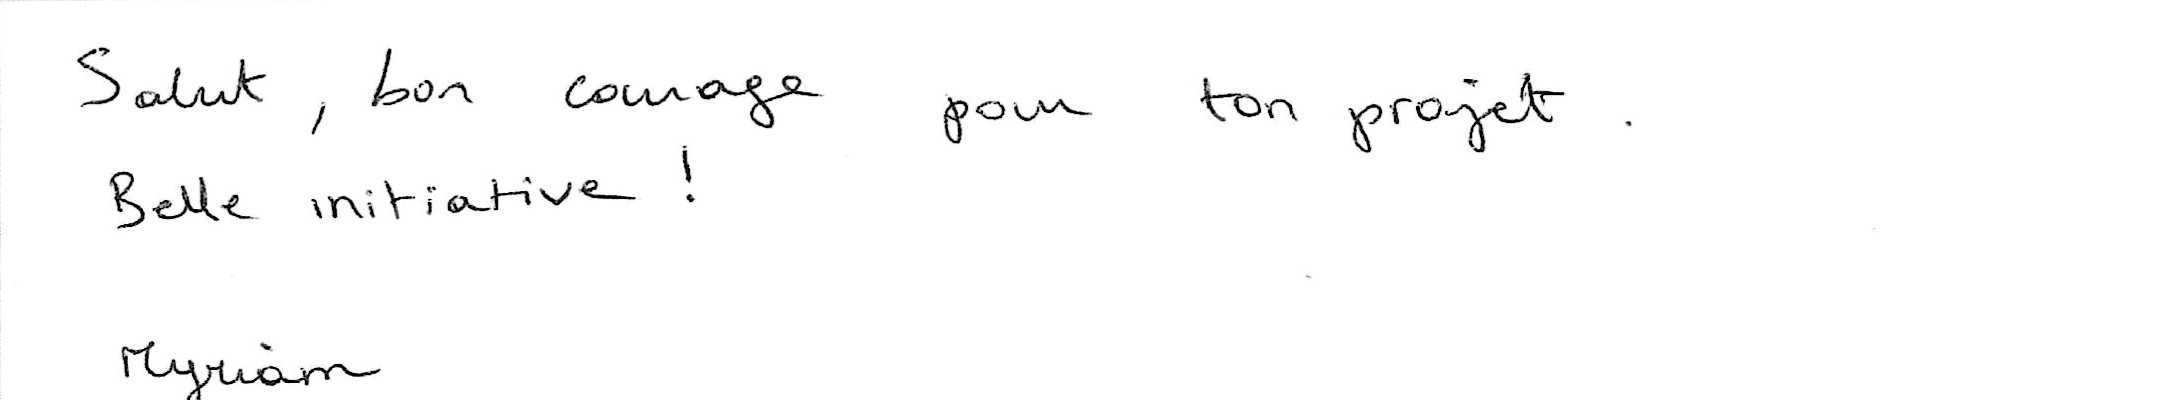 Salut, bon courage pour ton projet.
Belle initiative !
Myriam